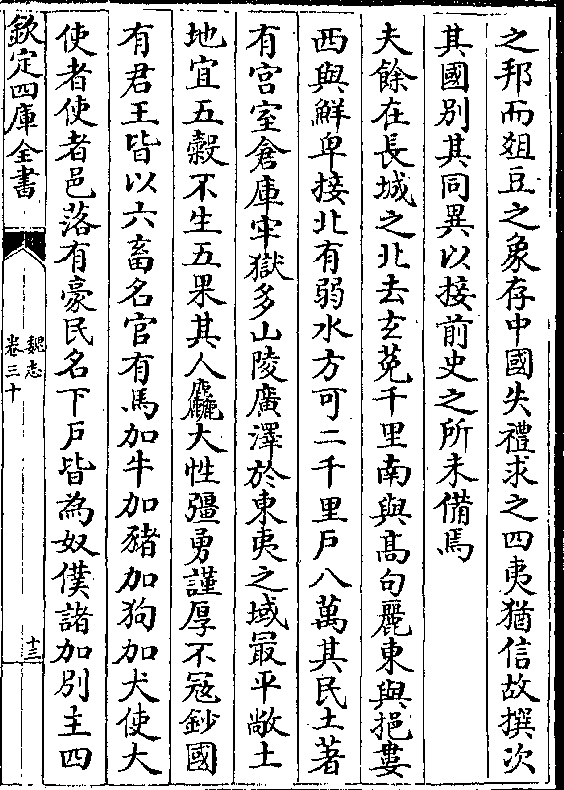 之邦而爼豆之象存中國失禮求之四夷猶信故撰次
其國別其同異以接前史之所未備焉
夫餘在長城之北去玄菟千里南與髙句麗東與挹婁
西與鮮卑接北有弱水方可二千里戶八萬其民土著
有宫室倉庫牢獄多山陵廣澤於東夷之域最平敞土
地宜五穀不生五果其人麤大性彊勇謹厚不冦鈔國
有君王皆以六畜名官有馬加牛加豬加狗加犬使大
使者使者邑落有豪民名下戶皆為奴僕諸加別主四
欽定四庫全書
魏志
卷三十
十三